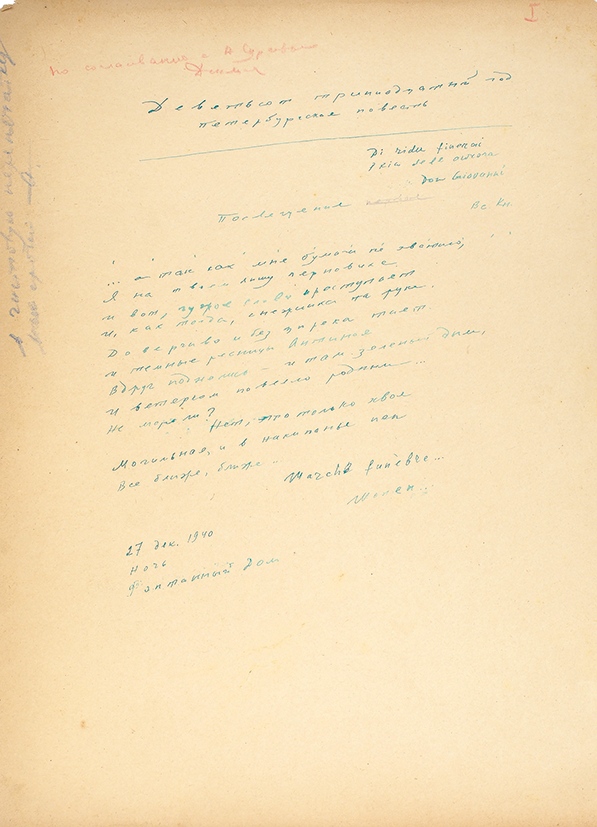 I
по согласованию с А.
Девятьсот тринадцатый год
петербургская повесть
Di rider finirai
Pria dell aurora
Don Giovanni
Посвящение
Вс Кн.
... а так как мне бумаги не хватило,
Я на твоем пишу черновике
и вот, чужое слово проступает
и, как тогда, снежинка на руке.
Доверчиво и без упрека тает.
и темные ресницы Антиноя
Вдруг поднялись – и там зеленый дым,
и ветерком повеяло родным...
Не море ли?
Нет, это только хвоя
Могильная, и в накипанье пен
Все ближе, ближе...
Marche funèbre...
Шопен...
27 дек. 1940
Ночь
Фонтанный Дом